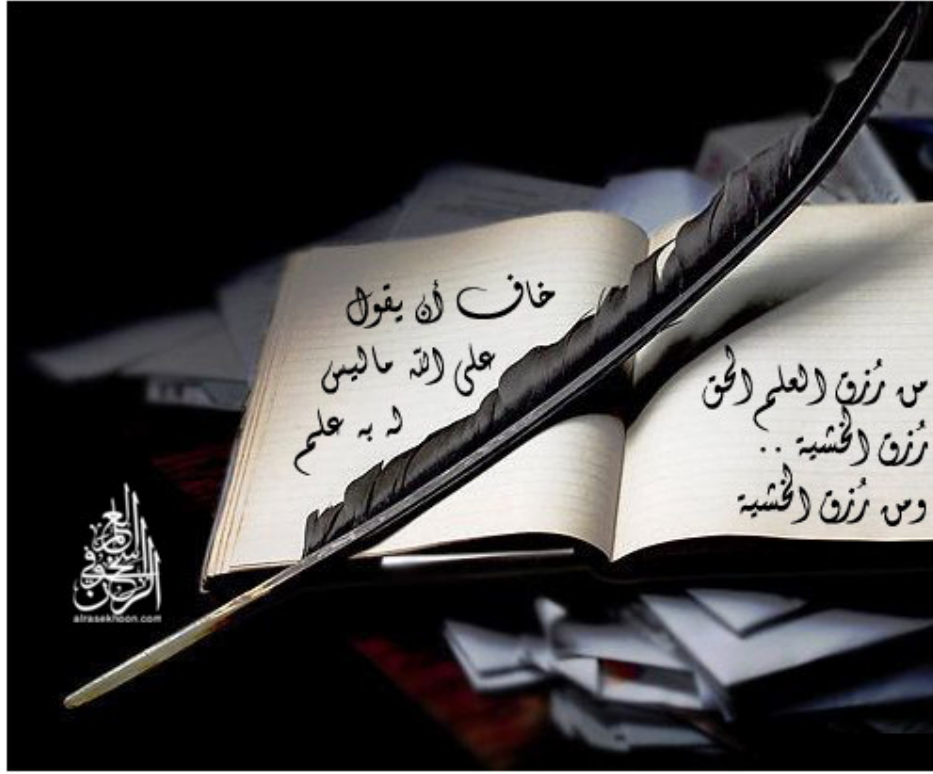 من رُزق العلم الحق
رُزق الخشية ..
ومن رُزق الخشية
خاف أن يقول
على الله ماليس
له به علم
الراسخون في العلم
alrasekhoon.com